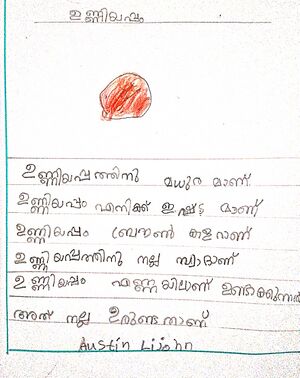 ഉണ്ണിയപ്പം
ഉണ്ണിയപ്പത്തിനു മധുര മാണ്
ഉണ്ണിയപ്പം എനിക്ക് ഇഷ്ട്ട മാണ്
ഉണ്ണിയപ്പം ബ്രൗൺ കളറാണ്
ഉണ്ണിയപ്പത്തിനു നല്ല സ്വാദാണ്
ഉണ്ണിയപ്പം എണ്ണയിലാണ് ഉണ്ടാക്കുന്നത്
അത് നല്ല ഉരുണ്ടതാണ്
Austin Lijohn